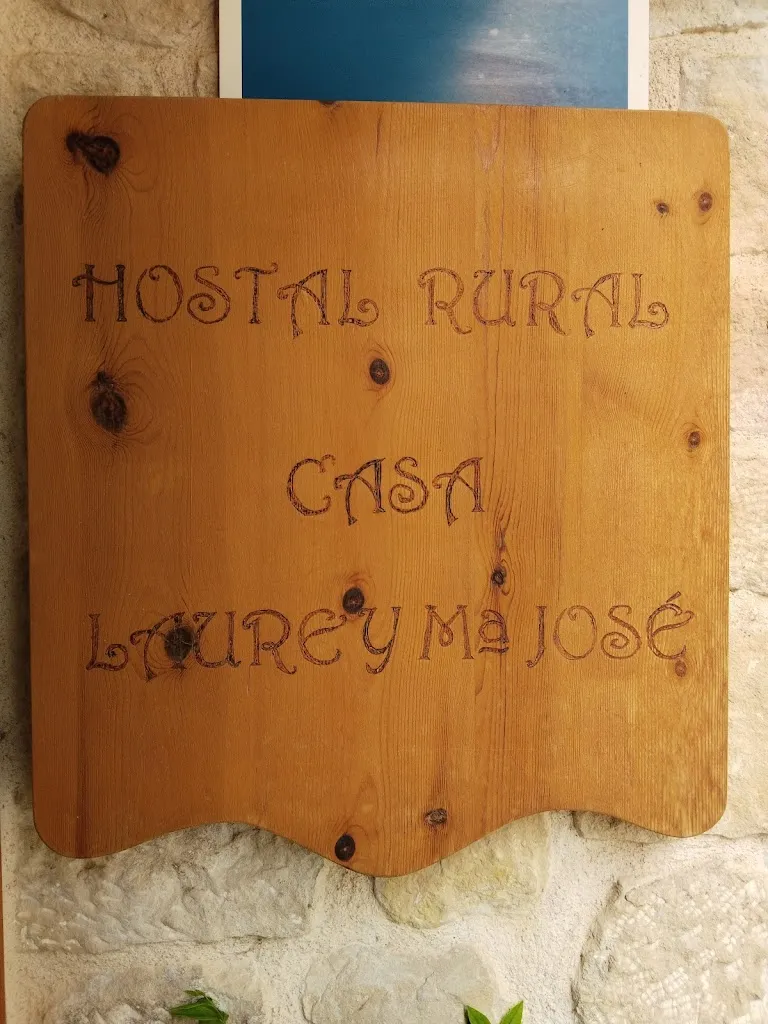 HOSTAL RURAL
CASA
LAURE Y Mª JOSÉ